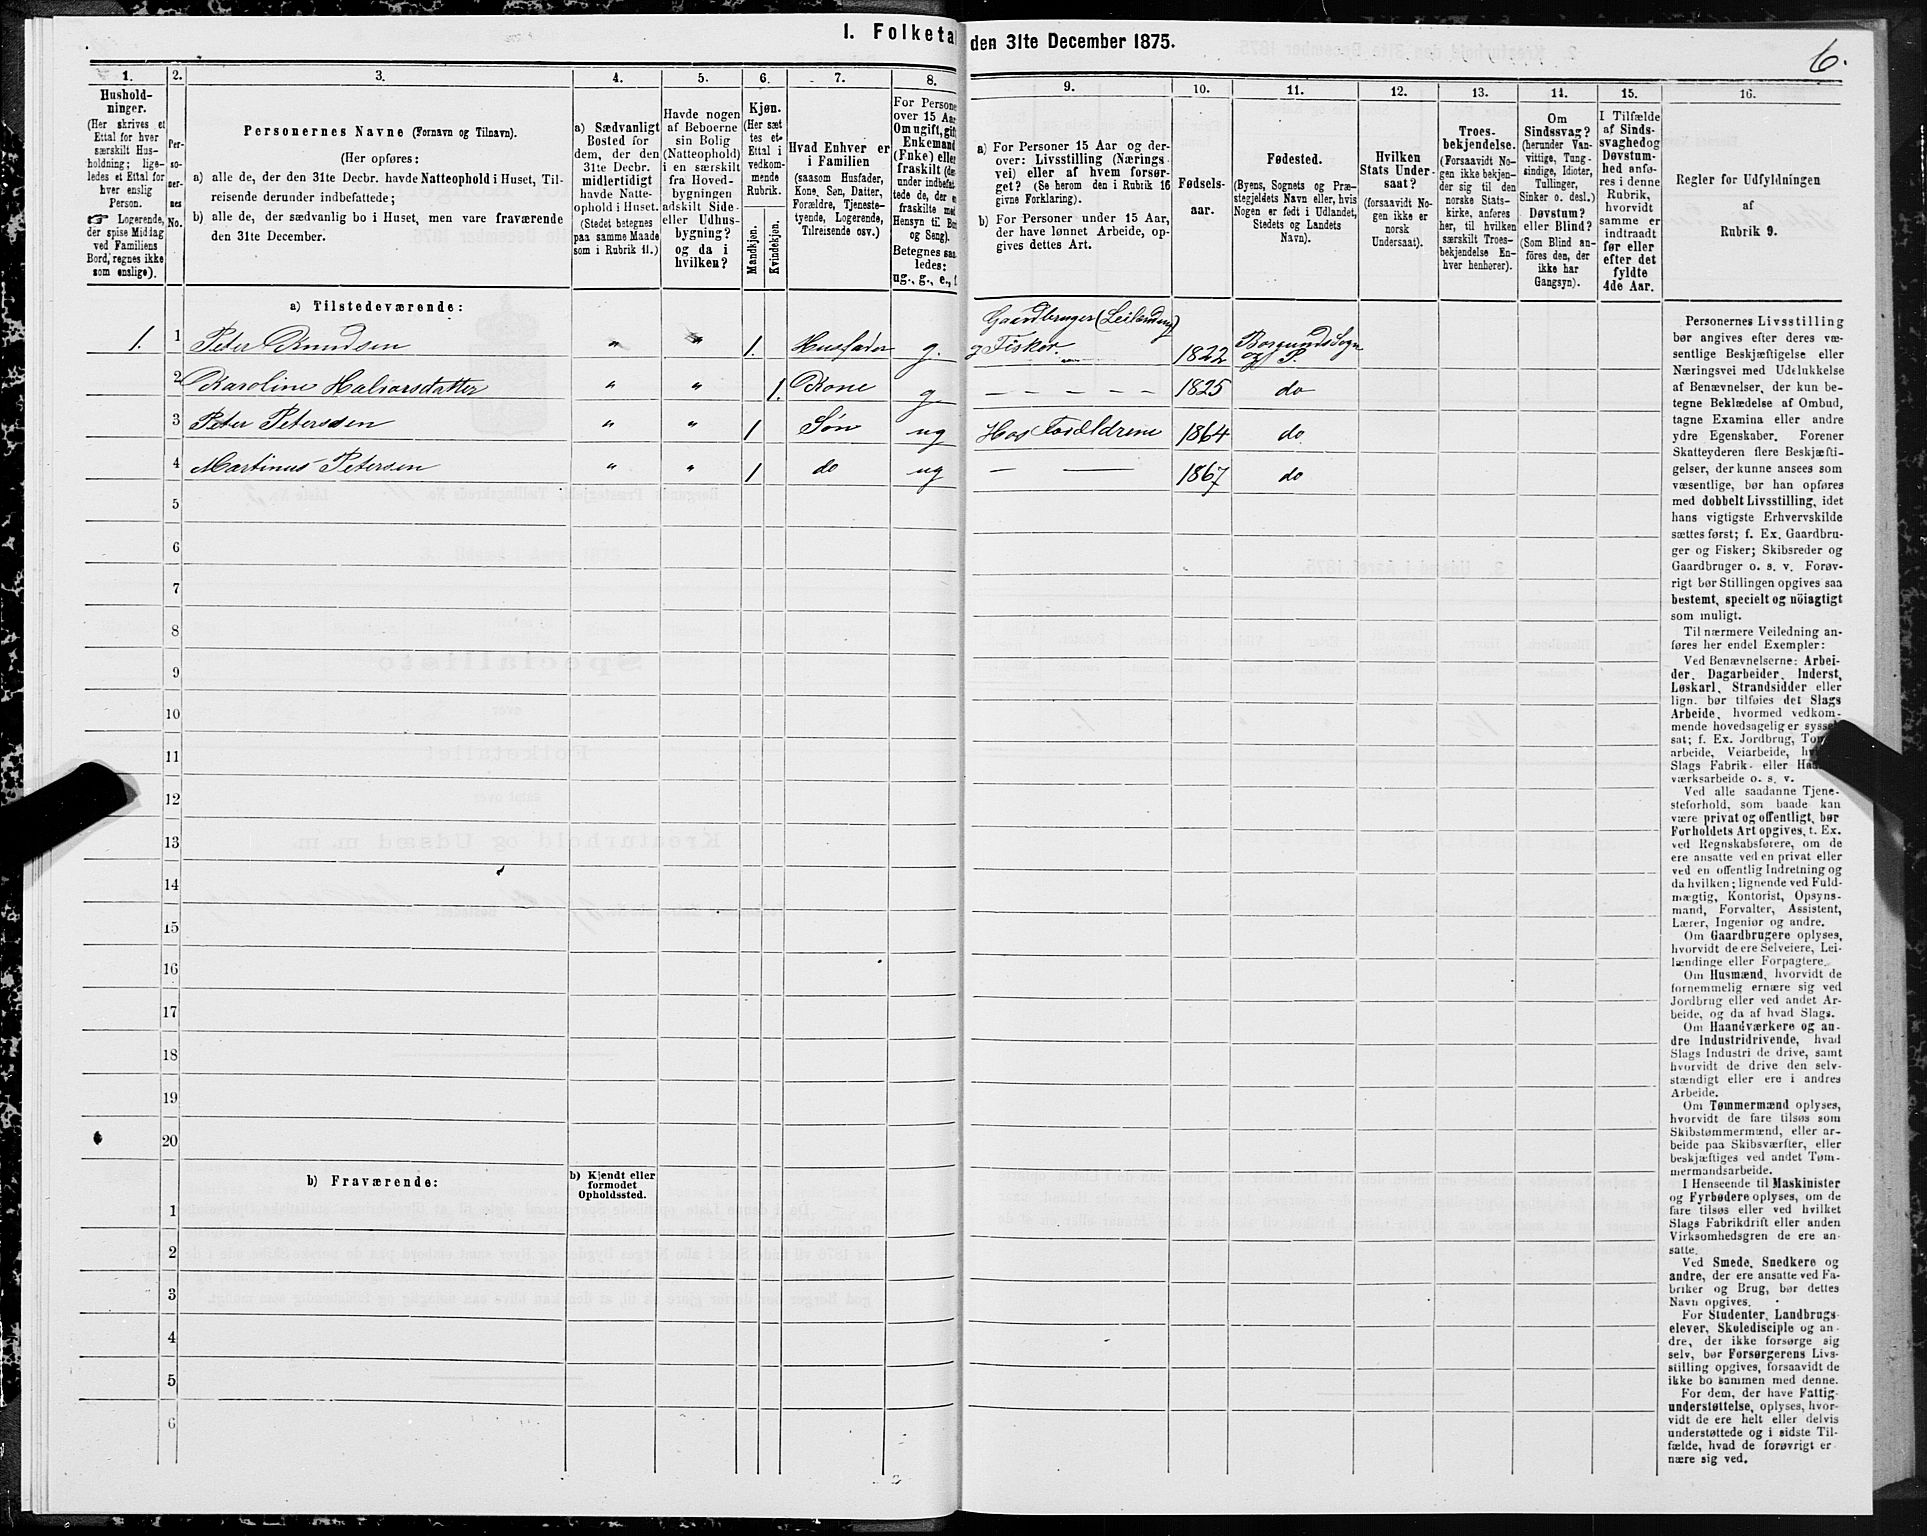 I. Folketa den 31te December 1875.
6.
1.
Hushold-
ninger.
(Her skrives et
Ettal for hver
særskilt Hus-
holdning; lige-
ledes et Ettal for
hver enslig
Person.
Logerende,
der spise Middag
ved Familiens
Bord, regnes ikke
som enslige).
2.
Per-
so-
ner-
nes
No.
3.
Personernes Navne (Fornavn og Tilnavn).
(Her opføres:
a) alle de, der den 31te Decbr. havde Natteophold i Huset, Til-
reisende derunder indbefattede;
b) alle de, der sædvanlig bo i Huset, men vare fraværende
den 31te December.
4.
a) Sædvanligt
Bosted for
dem, der den
31te Decbr.
midlertidigt
havde Natte-
ophold i Huset.
(Stedet betegnes
paa samme Maade
som i Rubrik 11.)
5.
Havde nogen
af Beboerne
sin Bolig
(Natteophold)
i en særskilt
fra Hoved-
bygningen
adskilt Side-
eller Udhus-
bygning?
og da i
hvilken?
6.
Kjøn.
(Her sæt
tes et
Ettal i
vedkom-
mende
Rubrik.
Mandkjøn.
Kvindekjøn.
7.
Hvad Enhver er
i Familien
(saasom Husfader,
Kone, Søn, Datter,
Forældre, Tjeneste-
tyende, Logerende,
Tilreisende osv.)
8.
For Persone
over 15 Aar
Om ugift, gift
Enkemand
(Enke) eller
fraskilt (de
under indbefat
tede de, der e
fraskilte med
Hensyn til Bo
og Seng).
Betegnes saa
ledes:
ug., g., e., f
9.
a) For Personer 15 Aar og der-
over: Livsstilling (Nærings-
vei) eller af hvem forsør-
get? (Se herom den i Rubrik 16
givne Forklaring).
b) For Personer under 15 Aar,
der have lønnet Arbeide, op-
gives dettes Art.
10.
Fødsels-
aar.
11.
Fødested.
(Byens, Sognets og Præ-
stegjeldets Navn eller, hvis
Nogen er født i Udlandet,
Stedets og Landets
Navn).
12.
Hvilken
Stats Under-
saat?
(forsaavidt No-
gen ikke er
norsk
Undersaat).
13.
Troes-
bekjendelse.
(Forsaavidt No-
gen ikke bekjen-
der sig til den
norske Stats-
kirke, anføres
her, til hvilken
særskilt Troes-
bekjendelse En-
hver henhører).
14.
Om
Sindssvag?
(herunder Van-
vittige, Tung-
sindige, Idioter,
Tullinger,
Sinker o. desl.)
Døvstum?
eller Blind?
(Som Blind an-
föres den, der
ikke har
Gangsyn).
15.
I Tilfælde
af Sinds-
svaghed og
Døvstum-
hed anfø-
res i denne
Rubrik,
hvorvidt
samme er
indtraadt
før eller
efter det
fyldte
4de Aar.
16.
Regler for Udfyldningen
af
Rubrik 9.
a) Tilstedeværende:
Gaardbruger (Leilending)
1. 1 Peter Knudsen " " 1. Husfader g. g Fisker. 1822 Borgunds Sogn
og P.
2 Karoline Halvorsdatter " " 1. Kone g. – – – – – 1825 do
3 Peter Petersen " " 1 Søn ug Hos Forældrene 1864 do
4 Martinus Petersen " " 1 do ug – — 1867 do
5
6
7
8
9
10
11
12
13
14
15
16
17
18
19
20
b) Fraværende:
b) Kjendt eller
formodet
Opholdssted.
1
2
3
4
5
6
Personernes Livsstilling
bør angives efter deres væ-
sentlige Beskjæftigelse eller
Næringsvei med Udelukkelse
af Benævnelser, der kun be-
tegne Beklædelse af Ombud,
tagne Examina eller andre
ydre Egenskaber. Forener
Skatteyderen flere Beskjæfti-
gelser, der kunne ansees som
væsentlige, bør han opføres
med dobbelt Livsstilling, idet
hans vigtigste Erhvervskilde
sættes først; f. Ex. Gaardbru-
ger og Fisker; Skibsreder og
Gaardbruger o. s. v. Forøv-
rigt bør Stillingen opgives saa
bestemt, specielt og nöiagtigt
som muligt.
Til nærmere Veiledning an-
føres her endel Exempler:
Ved Benævnelserne: Arbei-
der, Dagarbeider, Inderst,
Løskarl, Strandsidder eller
lign. bør tilføies det Slags
Arbeide, hvormed vedkom-
mende hovedsagelig er syssel-
sat; f. Ex. Jordbrug, Tom
arbeide, Veiarbeide, hv
Slags Fabrik- eller Haa
værksarbeide o. s. v.
Ved alle saadanne Tjene-
steforhold, som baade kan
være privat og offentligt, bør
Forholdets Art opgives, t. Ex.
ved Regnskabsførere, om de
ere ansatte ved en privat eller
ved en offentlig Indretning og
da hvilken; lignende ved Fuld-
mægtig, Kontorist, Opsyns-
mand, Forvalter, Assistent,
Lærer, Ingeniør og andre.
Om Gaardbrugere oplyses,
hvorvidt de ere Selveiere, Lei-
lændinge eller Forpagtere.
Om Husmænd, hvorvidt de
fornemmelig ernære sig ved
Jordbrug eller ved andet Ar-
beide, og da af hvad Slags.
Om Haandværkere og an-
dre Industridrivende, hvad
Slags Industri de drive, samt
hvorvidt de drive den selv-
stændigt eller ere i andres
Arbeide.
Om Tømmermænd oplyses,
hvorvidt de fare tilsøs som
Skibstømmermænd, eller ar-
beide paa Skibsværfter, eller
beskjæftiges ved andet Tøm-
mermandsarbeide.
I Henseende til Maskinister
og Fyrbødere oplyses, om de
fare tilsøs eller ved hvilket
Slags Fabrikdrift eller anden
Virksomhedsgren de ere an-
satte.
Ved Smede, Snedkere og
andre, der ere ansatte ved Fa-
briker og Brug, bør dettes
Navn opgives.
For Studenter, Landbrugs-
elever, Skoledisciple og an-
dre, der ikke forsørge sig
selv, bør Forsørgerens Livs-
stilling opgives, forsaavidt de
ikke bo sammen med denne.
For dem, der have Fattig-
understøttelse, oplyses, hvor-
vidt de ere helt eller delvis
understøttede og i sidste Til-
fælde, hvad de forøvrigt er-
nære sig ved.